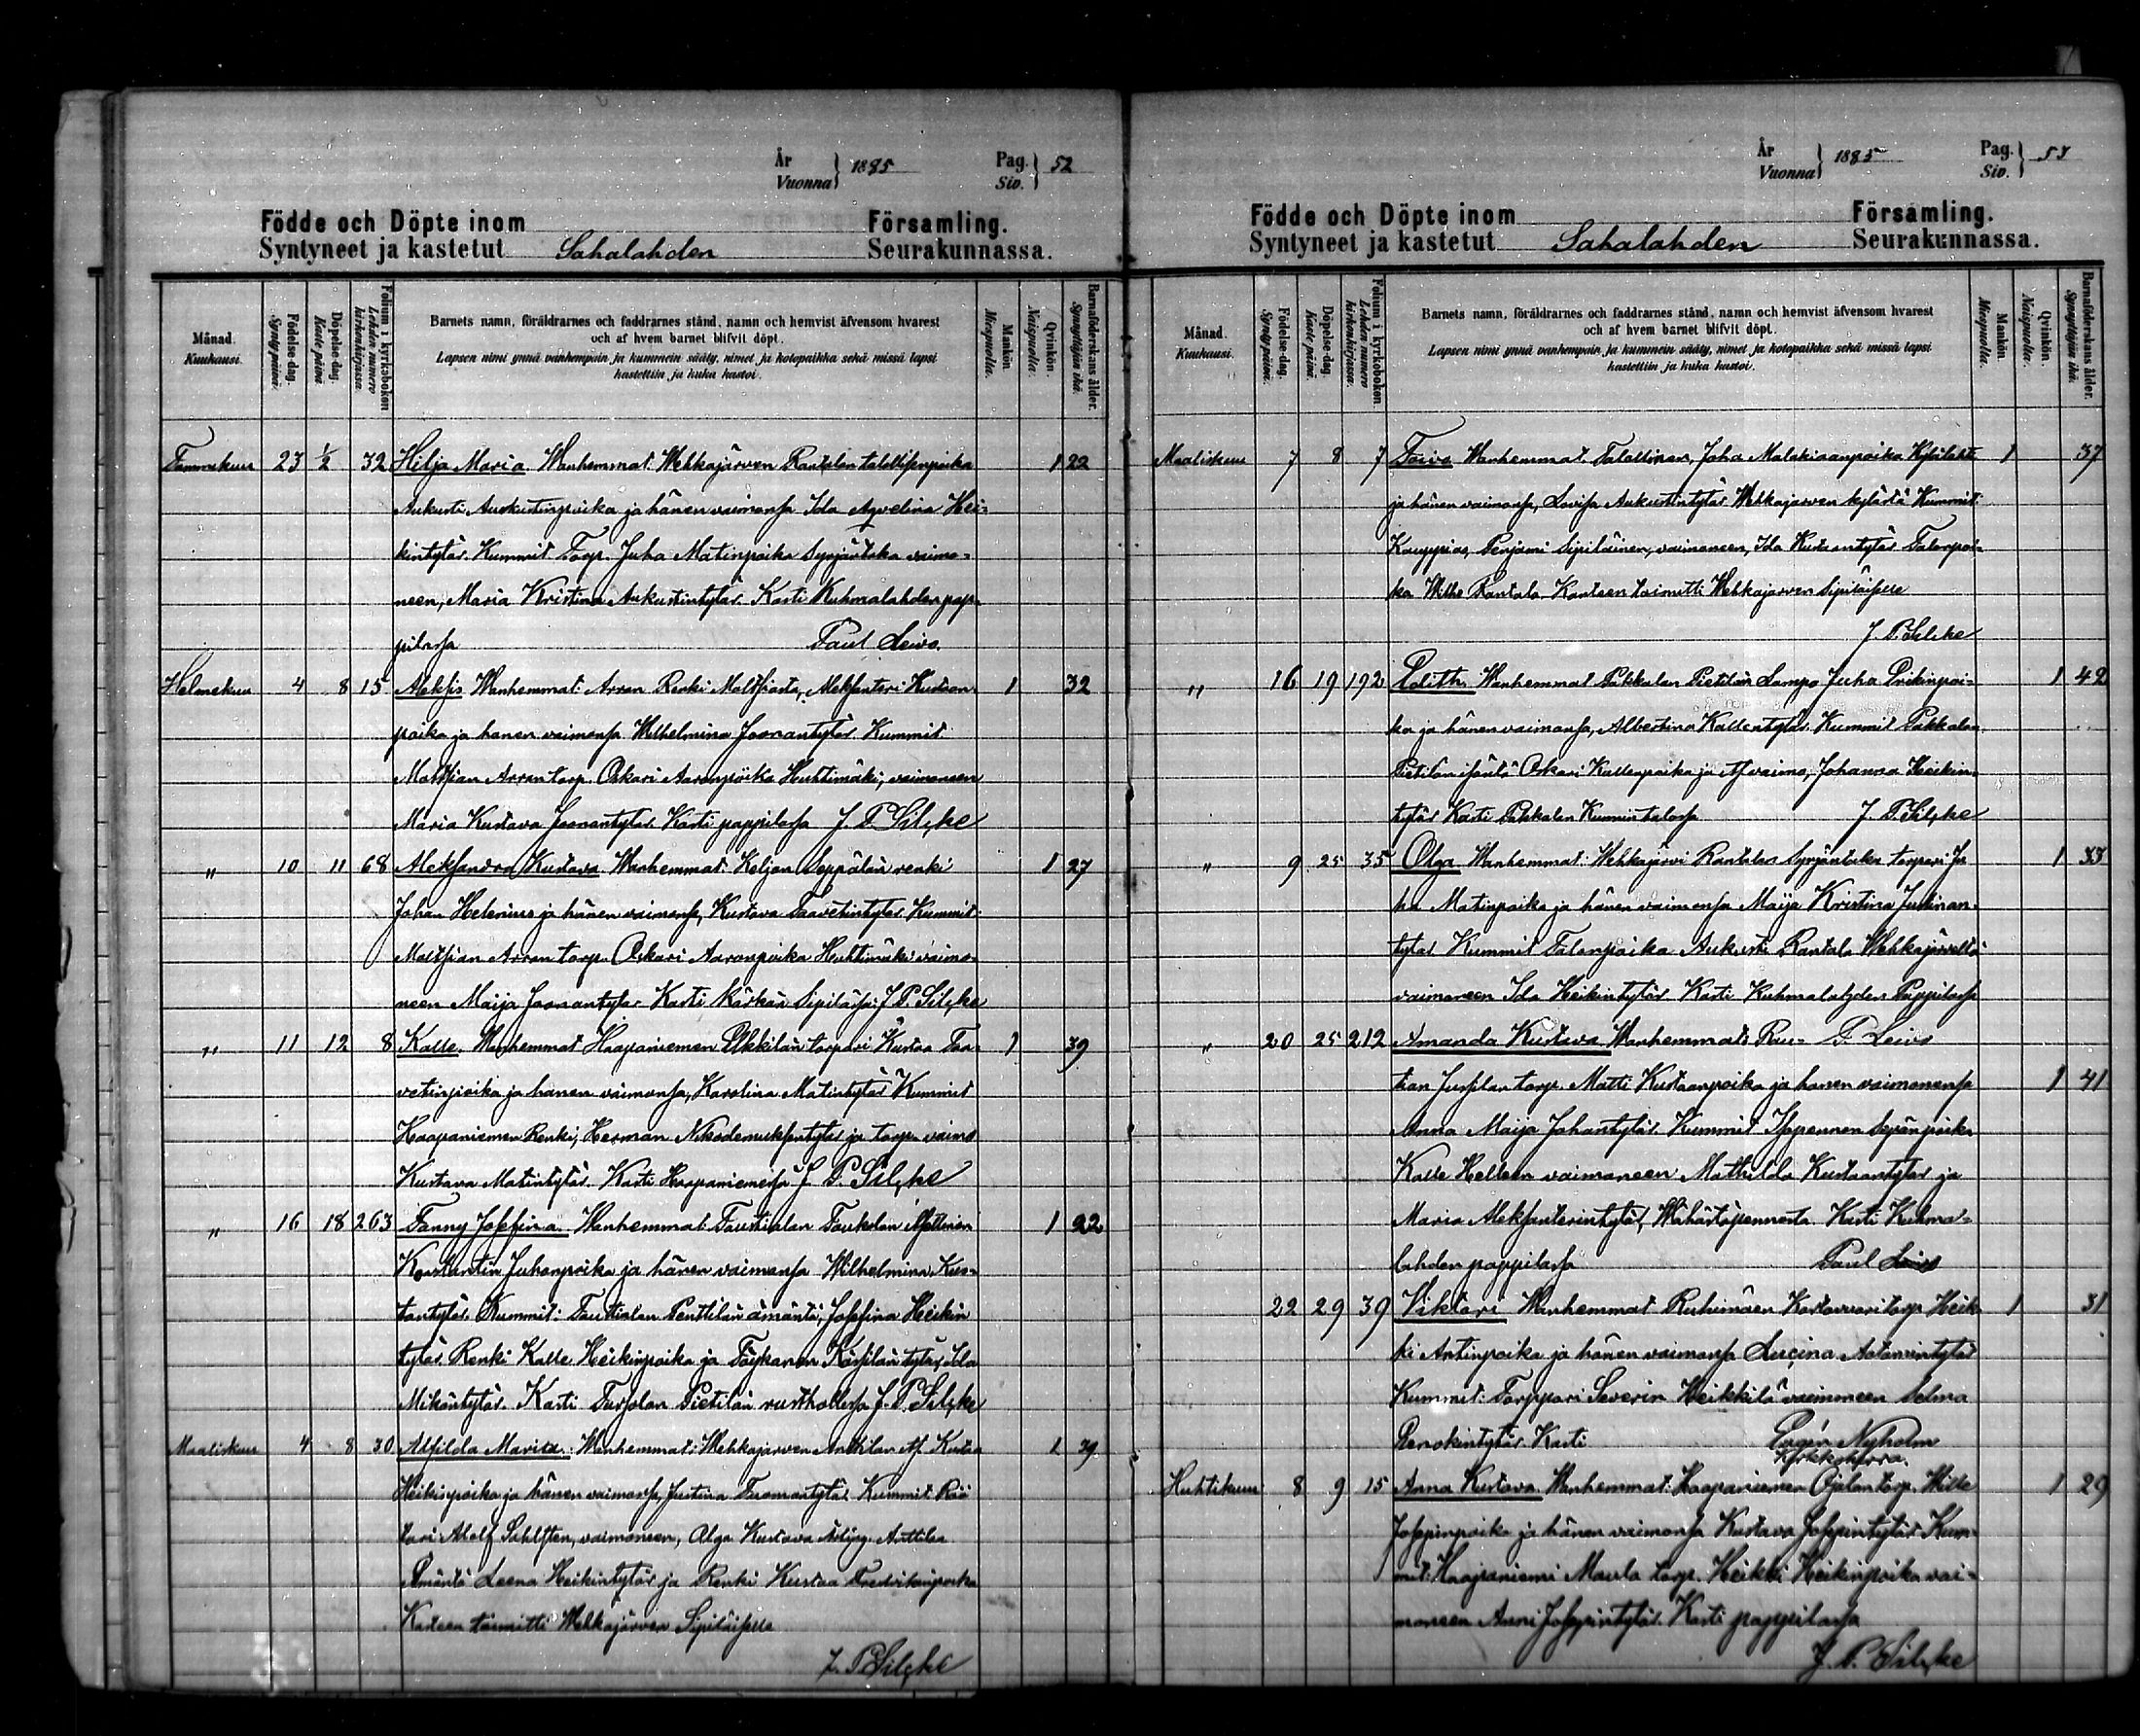 År
Vuonna } 1885 Pag.
Siv. } 52
Födde och Döpte inom Församling.
Syntyneet ja kastetut Sahalahden Seurakunnassa.
Månad.
Kuukausi.
Födelse-dag.
Syntypäivä.
Döpelse-dag.
Kaste päivä
Folium i kyrkoboken
Lehden numero
kirkonkirjassa.
Barnets namn, föräldrarnes och faddrarnes stånd, namn och hemvist äfvensom hvarest
och af hvem barnet blifvit döpt.
Lapsen nimi ynnä vanhempain ja kummein sääty, nimet ja kotopaikka sekä missä lapsi
kastettiin ja kuka kastoi.
Mankön.
Miespuolta.
Qvinkön.
Naispuolta.
Barnaföderskans ålder.
Synnyttäjän ikä.
Tammikuu 23 1/2 32 Hilja Maria Wanhemmat Wehkajärven Rantalan 1 22
Aukusti Aukustinpoika ja hänen vaimonsa Ida Hei-
kintytär. Kummit Torp. Juha Matinpoika Syrjäntaka vaimo-
neen, Maria Kristina Aukustintytär. Kasti Kuhmalahden pap-
pilassa Paul Leivo.
Helmikuu 4 8 15 Aleksis Wanhemmat Arran Renki Aleksanteri Kustaan 1 32
poika ja hänen vaimonsa Wilhelmina Joonantytär Kummit
Arran torp. Oskari Aaronpoika Huhtimäki, vaimoneen
Maria Kustava Joonantytär. Kasti pappilassa J. P. Silpke
" 10 11 68 Aleksandra Kustava. Wanhemmat: Keljan Seppälän renki 1 27
Johan Helenius ja hänen vaimonsa, Kustava Taavetintytär Kummit:
Arran torp. Oskari Aaronpoika Huhtimäki vaimo-
neen Maija Joonantytär Kasti Sipilässä: J. P. Silpke
" 11 12 8 Kalle. Wanhemmat Haapaniemen torpari Kustaa Taa- 1 39
vetinpoika ja hänen vaimonsa, Karolina Matintytär Kummit
Haapaniemen Renki, Herman ja torp. vaimo
Kustava Matintytär. Kasti Haapaniemessä J. P. Silpke
" 16 18 263 Fanny Josefina. Wanhemmat: Taustialan 1 22
Konstantin Juhanpoika ja hänen vaimonsa Wilhelmina Kus-
taantytär. Kummit: Taustialan Penttilän ämäntä, Josefina Heikin
tytär. Renki Kalle Heikinpoika ja tytär, Ida
Mikontytär. Kasti Tursolan Pietilän rusthollissa J. P. Silpke
Maaliskuu 4 8 30 Alfilda Maria. Wanhemmat: Wehkajärven Anttilan Kustaa 1 39
Heikinpoika ja hänen vaimonsa, Justina Tuomantytär Kummit Rää
tari Adolf vaimoneen, Olga Kustava Anttilan
Ämäntä Leena Heikintytär ja Renki Kustaa
Kasteen toimitti Wehkajärven Sipiläisessä
J. P. Silpke
År
Vuonna } 1885 Pag.
Siv. } 53
Födde och Döpte inom Församling.
Syntyneet ja kastetut Sahalahden Seurakunnassa.
Månad.
Kuukausi.
Födelse-dag.
Syntypäivä.
Döpelse-dag.
Kaste päivä.
Folium i kyrkoboken.
Lehden numero
kirkonkirjassa.
Barnets namn, föräldrarnes och faddrarnes stånd, namn och hemvist äfvensom hvarest
och af hvem barnet blifvit döpt.
Lapsen nimi ynnä vanhempain ja kummein sääty, nimet ja kotopaikka sekä missä lapsi
kastettiin ja kuka kastoi.
Mankön.
Miespuolta.
Qvinkön.
Naispuolta.
Barnaföderskans ålder.
Synnyttäjän ikä.
Maaliskuu 7 8 7 Toivo Wanhemmat Talollinen, Juha Malakiaanpoika 1 37
ja hänen vaimonsa, Lovisa Aukustintytär Wehkajärven kylästä Kummit
Kauppias, Penjami Sipiläinen, vaimoneen, Ida Kustaantytär Talonpoi-
ka Wille Rantala. Kasteen toimitti Wehkajärven Sipiläisessä
J. P. Silpke
" 16 19 192 Edith. Wanhemmat Pakkalan Pietilän Lampo Juha Erikinpoi- 1 42
ka ja hänen vaimonsa, Albertina Kallentytär. Kummit Pakkalan
Pietilän isäntä Oskari Kallenpoika ja vaimo, Johanna Heikin-
tytär Kasti Pakkalan J. P. Silpke
" 9 25 35 Olga Wanhemmat: Wehkajärvi Rantalan Syrjäntaka torpari Ju 1 33
ha Matinpoika ja hänen vaimonsa Maija Kristina
tytär. Kummit Talonpoika Aukusti Rantala Wehkajärveltä
vaimoneen Ida Heikintytär Kasti Kuhmalahden Pappilassa
" 20 25 212 Amanda Kustava Wanhemmat: P Leivo
torp. Matti Kustaanpoika ja hänen vaimonensa 1 41
Anna Maija Johantytär. Kummit
Kalle Hellsen vaimoneen Mathilda Kustaantytär ja
Maria Aleksanterintytär, Kasti Kuhma-
lahden pappilassa Paul Leivo
22 29 39 Viktori Wanhemmat torp. Heik- 1 31
ki Antinpoika ja hänen vaimonsa Aatamintytär
Kummit: Torppari Severin Heikkilä vaimoneen Selma
Kasti Nyholm
Kirkkoherra.
Huhtikuu 8 9 15 Anna Kustava Wanhemmat: Haapaniemen Ojalan torp. Wille 1 29
Josepinpoika ja hänen vaimonsa Kustava Josepintytär Kum-
mit: Haapaniemi Maula torp. Heikki Heikinpoika vai-
moneen Anni Josepintytär. Kasti pappilassa
J. P. Silpke